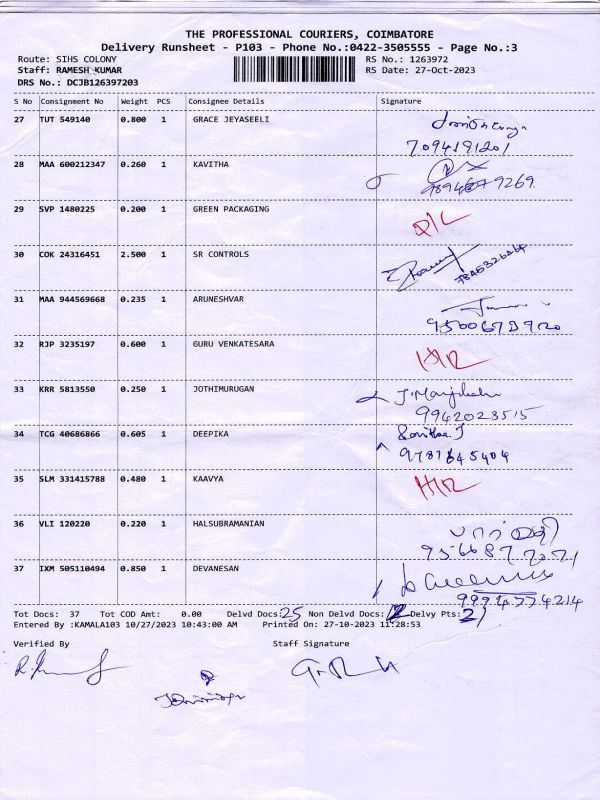 THE PROFESSIONAL COURIERS, COIMBATORE
Delivery Runsheet - P103 - Phone No.:0422-3505555 - Page No.:3
Route: SIHS COLONY RS No.: 1263972
Staff: RAMESH KUMAR RS Date: 27-Oct-2023
DRS No.: DCJB126397203
S No Consignment No Weight PCS Consignee Details Signature
27 TUT 549140 0.800 1 GRACE JEYASEELI
7094191201
28 MAA 600212347 0.260 1 KAVITHA
29 SVP 1480225 0.200 1 GREEN PACKAGING
30 COK 24316451 2.500 1 SR CONTROLS
31 MAA 944569668 0.235 1 ARUNESHVAR
32 RJP 3235197 0.600 1 GURU VENKATESARA
33 KRR 5813550 0.250 1 JOTHIMURUGAN
9942023515
34 TCG 40686866 0.605 1 DEEPIKA
35 SLM 331415788 0.480 1 KAAVYA
36 VLI 120220 0.220 1 HALSUBRAMANIAN
37 IXM 505110494 0.850 1 DEVANESAN
Tot Docs: 37 Tot COD Amt: 0.00 Delvd Docs: 25 Non Delvd Docs: 12 Delvy Pts: 21
Entered By :KAMALA103 10/27/2023 10:43:00 AM Printed On: 27-10-2023 11:28:53
Verified By Staff Signature